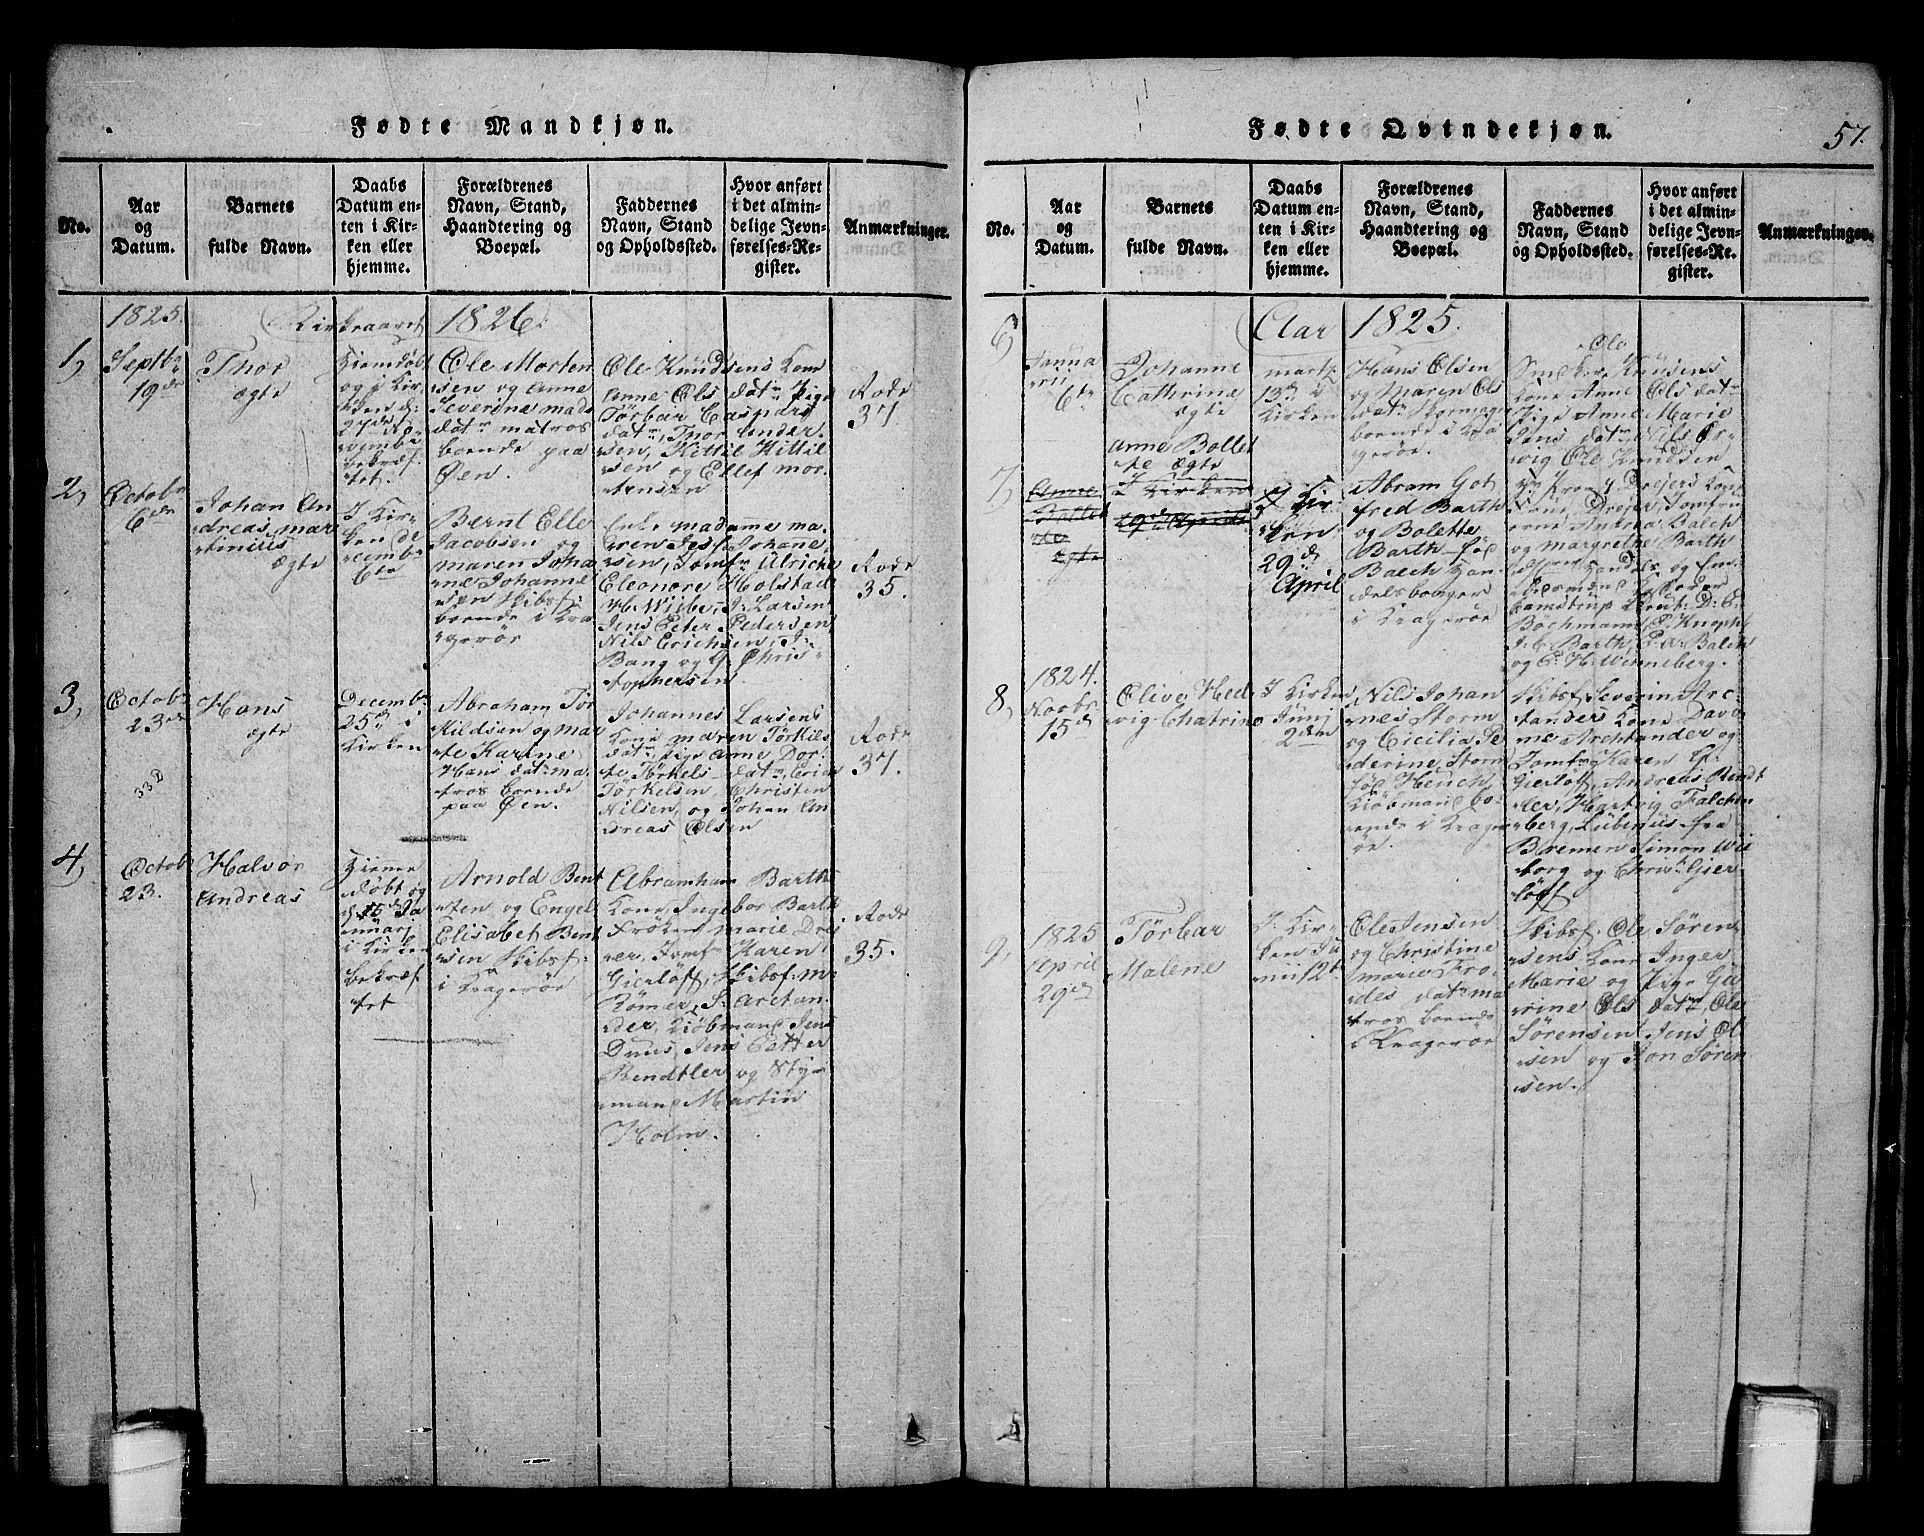 Fødte Mandkjøn.
No.
Aar
og
Datum.
Barnets
fulde Navn.
Daabs
Datum en-
ten i Kir-
ken eller
hjemme.
Forældrenes
Navn, Stand,
Haandtering og
Boepæl.
Faddernes
Navn, Stand
og Opholdssted.
Hvor anført
i det almin-
delige Jevn-
førelses-Re-
gister.
Anmærkninger.
1825.
Kirkeaaret 1826.
1,
Septbr
19de
Thor
ægte
Hiemdøbt
og i Kir-
ken d:
27de No-
vembr
bekræf-
tet.
Ole Morten
sen og Anne
Severine mads
datr matros
boende paa
Øen.
Ole Knudsens Kone
Anne Ols datr Pige
Törbar Caspars
datr, Thor Ander-
sen, Kittil Kittil
sen og Ellef mor-
tensen
Rode
37
2,
Octobr
6de
Johan An
dreas mar
tinius
ægte
I Kir-
ken de-
cembr
6te
Bernt Elle
Jacobsen og
maren Joha
ne Johanne
sen Skibsf:
boende i Kra
gerör
Enke madamme ma-
ren Jesf. Johane,
sen, Jomfr Ulriche
Eleonore Holstad
H. Wiibe, J: Larsen
Jens Peter Pedersen
Nils Erichsen, J:
Bang og G. Chris-
tophersen
Rode
35.
3,
Octobr
23de
33 D
Hans
ægte
Decembr
25de i
Kirken
Abraham Tör
kildsen og mar
te Karine
Hans datr ma-
tros boende
paa Øen.
Johannes Larsens
Kone maren Törkils
datr, Pige Anne Dor-
te Törkels datr, Erich
Törkelsen, Christen
Nilsen, og Johan An
dreas Olsen
Rode
37.
4,
Octob
23.
Halvor
Andreas
Hieme
döbt og
d. 15de Ja
nuarj
i Kirken
bekræf
tet
Arnold Bent
sen og Engel
Elisabet Bent
sen Skibsf:
i Kragerör
Abramham Barth
Kone, Ingebor Barth
Fröken marie Drei
er, Jomfr Karen
Gierlöff, Skibsf. M-
Römer, S. Arctan-
der, Kiöbmand Jens
Duus, Jens Petter
Bendtler og Sty-
rmand Martin
Holm.
Rode
35.
Fødte Qvindekjøn.
57.
No.
Aar
og
Datum.
Barnets
fulde Navn.
Daabs
Datum en-
ten i Kir-
ken eller
hjemme.
Forældrenes
Navn, Stand,
Haandtering og
Boepæl.
Faddernes
Navn, Stand
og Opholdssted.
Hvor anført
i det almin-
delige Jevn-
førelses-Re-
gister.
Anmærkninger.
Aar 1825.
6,
Janua
rii
6te
Johanne
Cathrine
ægte
marts
13de i
Kirken
Hans Olsen
og Maren Ols
datr
boende i Kra
gerör.
Ole
Knüsens
Kone Anne Ols dat-
Pige Anne Marie
Jens datr, Nils Ör-
wig Ole Knudsen
7,
Anne
Bollet
te
ægte
Anne Bollet
te ægte
I Kirken
29de April
i Kir
ken
29de
April
Abram Got
fred Barth
og Bolette
Barth föd
Balch Han
delsborger
i Kragerör
Drejers Kone
Drejer, Jomfru
erne Andrea Balch
og Margrethe Barth
og
Bamstrup D: C.
Bachmann, P. Knoph
J. C. Barth, P. A: Balch
og C. H. Winneberg.
8,
1824.
Novbr
15de
Olive Hed
vig Chatrine
I Kirken
Junj
2den
Nils Johan
nes Storm
og Cicilia Se
verine Storm
föd Heuch
Kiöbmand bo-
ende i Krager
ör.
Skibsf. Severin Arc-
tanders Kone Dava
me Archtander og
Jomfr Karen E.
Gierlöff, Andreas Bendt
ler, Hartvig Falchen
berg, Lübinus fra
Bremen Simon Wii
borg og Christ: Gier-
löff
9,
1825
April
29de
Törbar
Malene
I Kir-
ken Ju
nii 12te
Ole Jensen
og Christine
marie Fro-
des datr ma
tros boende
i Kragerör
Skibsf. Ole Sören
sens Kone Inger
Marie og Pige Ga
rine Ols datr, Ole
Sörensen Jens Ol
sen og Jon Sören
sen.